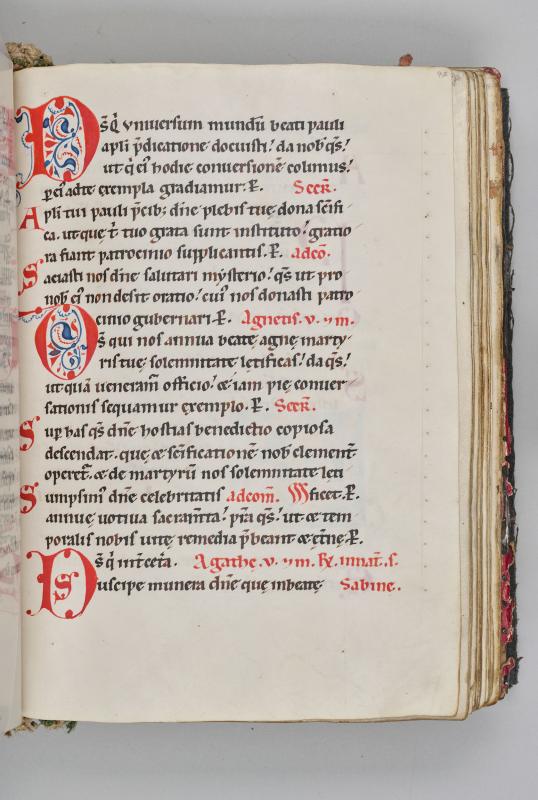 Ds̄ q̇ vniuersum mundū beati pauli
apl̄i p̄dicatione docuisti / da nob̄ q̄s /
ut q̇ ei᾽ hodie conuersionē colimus /
ꝑ ei᾽ ad te exempla gradiamur. P̱. Secr̄.
Apl̄i tui pauli p̄cib; dn̄e plebis tuę dona sc̄ifi-
ca. ut quę t̄ tuo grata sunt instituto / gratio
ra fiant patrocinio supplicantis. P̱. adcō.
Saciasti nos dn̄e salutari mysterio / q̄s ut pro
nob̄ ei᾽ non desit oratio / cui᾽ nos donasti patro
cinio gubernari. P̱. Agnetis. v. ⁊ m.
Ds̄ qui nos annua beatę agnę marty-
ris tuę solemnitate lętificas / da q̄s /
ut quā ueneram̄ officio / &iam pię conuer
sationis sequamur exemplo. P̱. Secr̄.
Sup̱ has q̄s dn̄e hostias benedictio copiosa
descendat. quę & sc̄ificationē nob̄ clement̄
operet᷒. & de martyrū nos solemnitate lęti
Sumpsim᾽ dn̄e celebritatis adcom̄. ficet. P̱.
annuę uotiua sacram̄ta / p̄ta q̄s / ut & tem
poralis nobis uitę remedia p̄beant & ęt̄nę. P̱.
Ds̄ q̇ int̄ cęt̄a. Agathę. v. ⁊ m. R̄x. in nat̄. s.
Suscipe munera dn̄e quę in beatę Sabine.